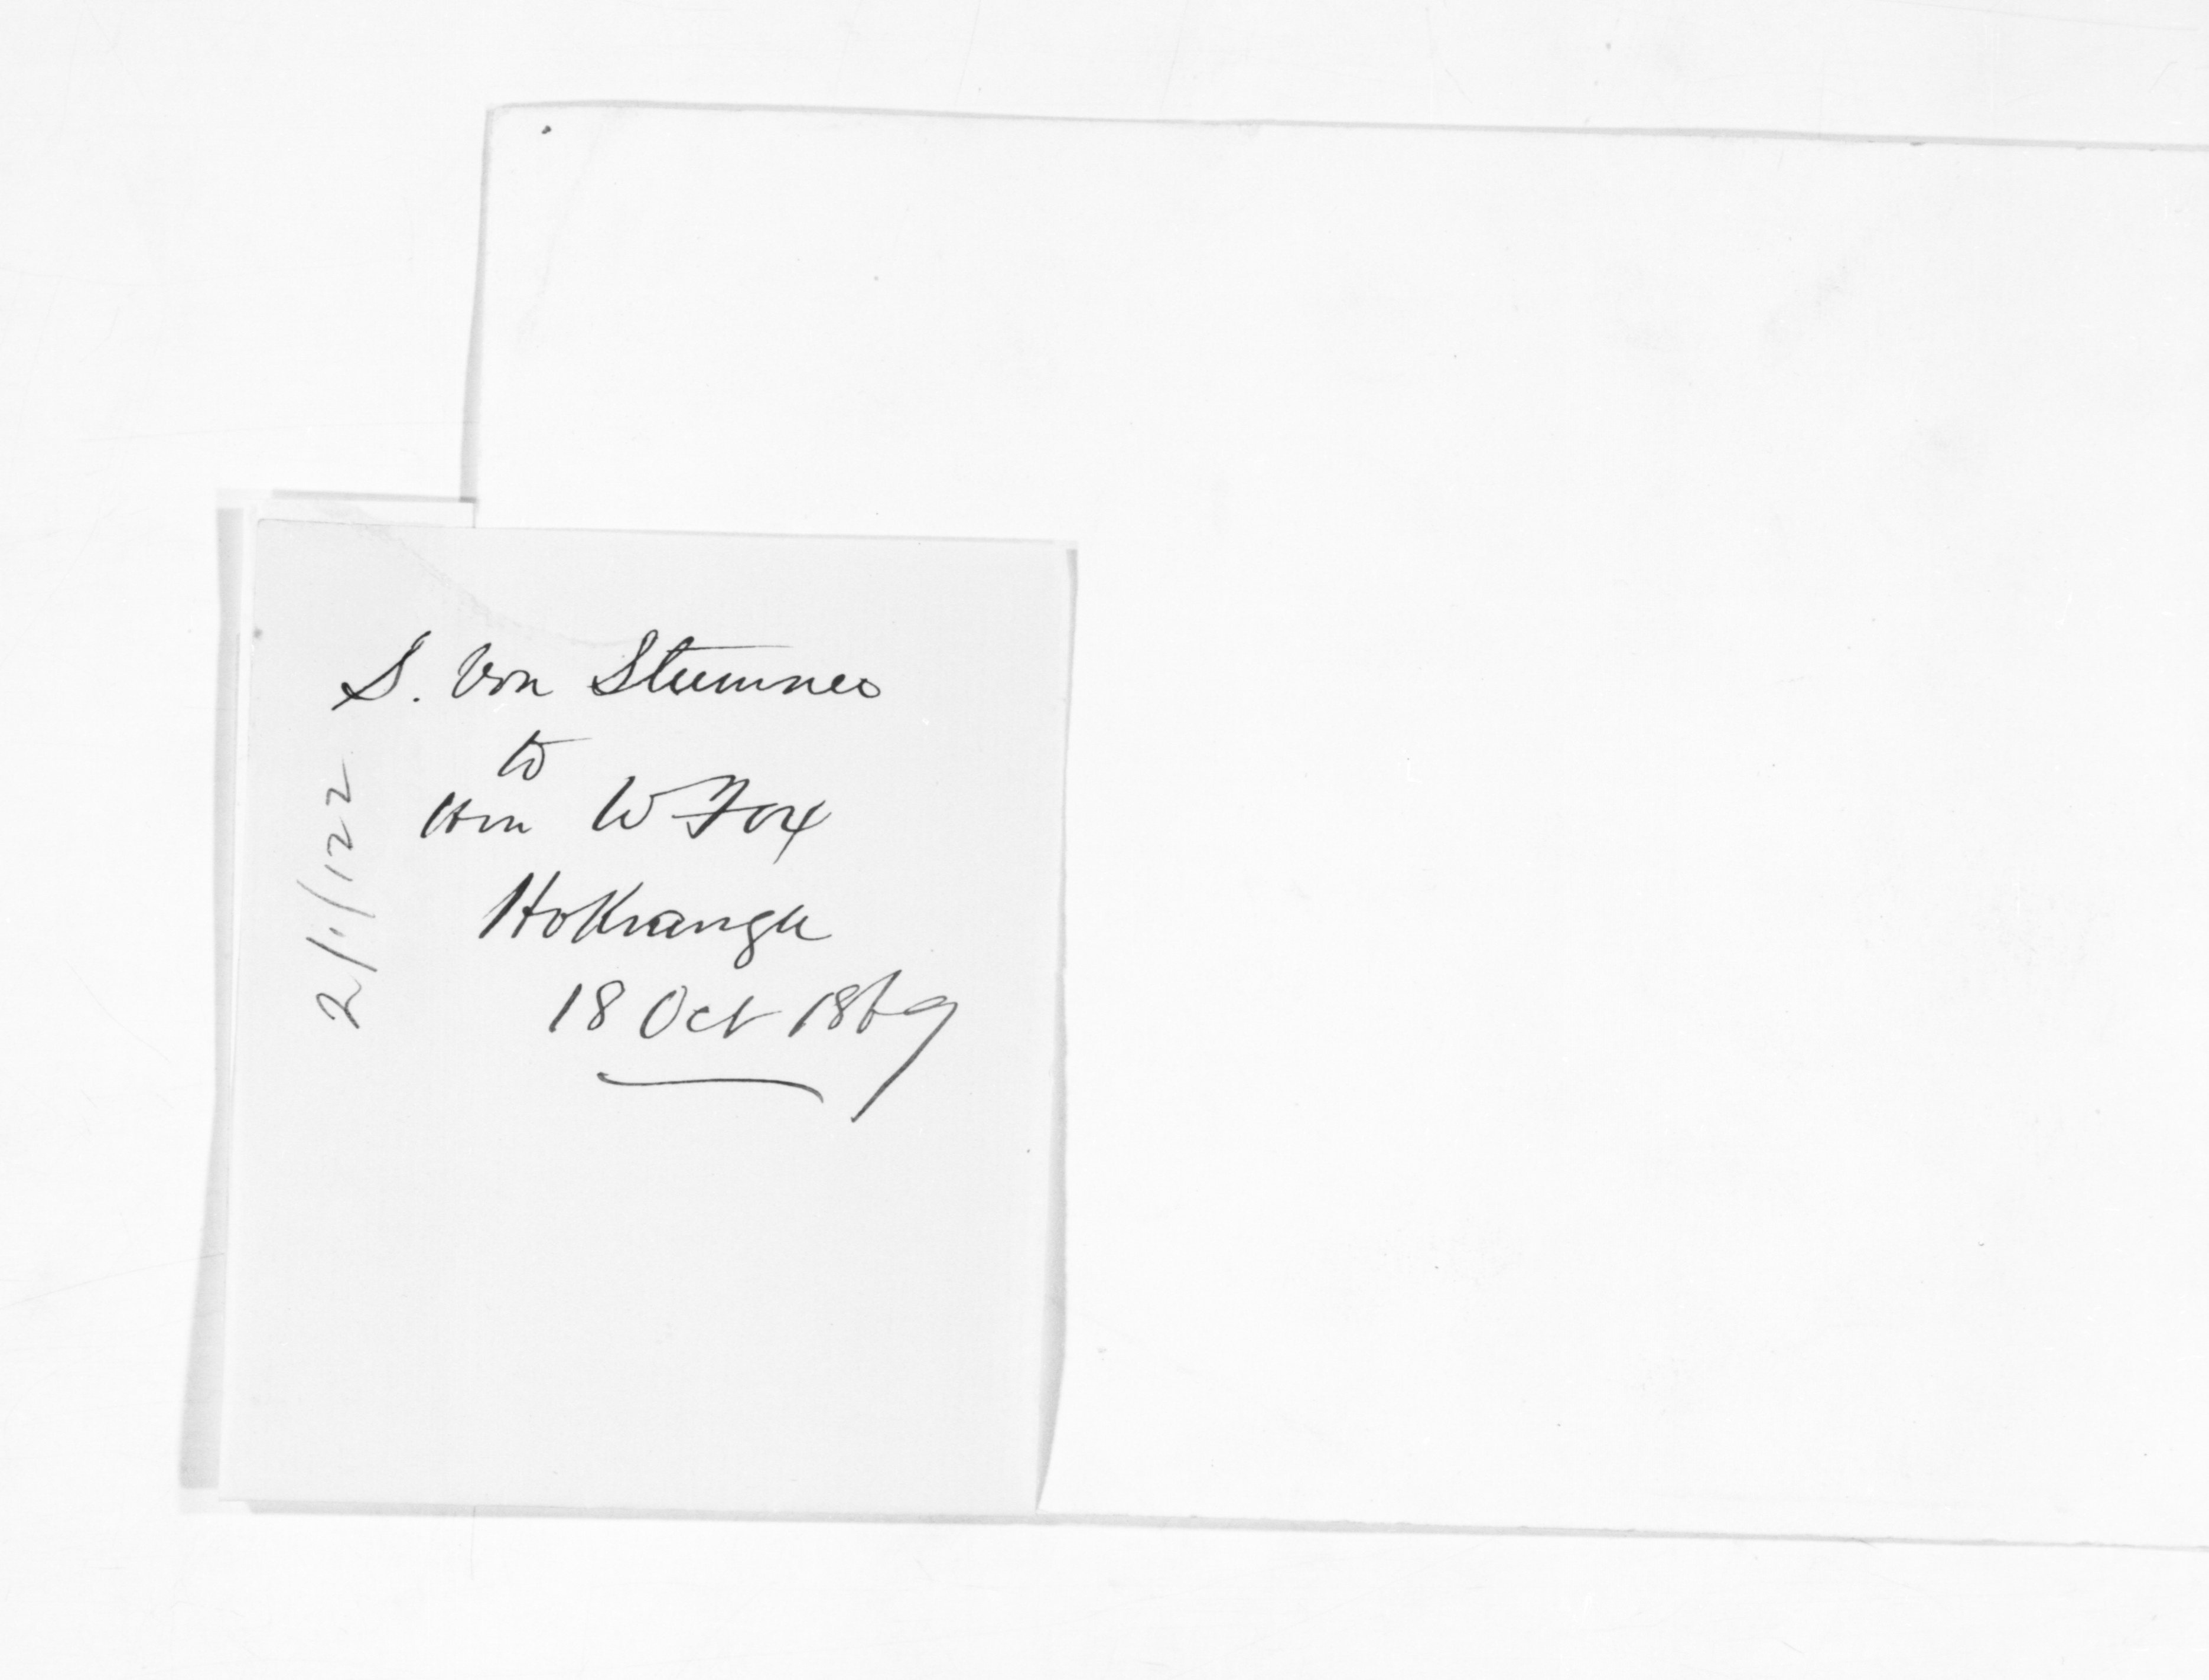 S. Von Sturmer
to
Hon W Fox
Hokianga
18 Oct 1869
2/1/122